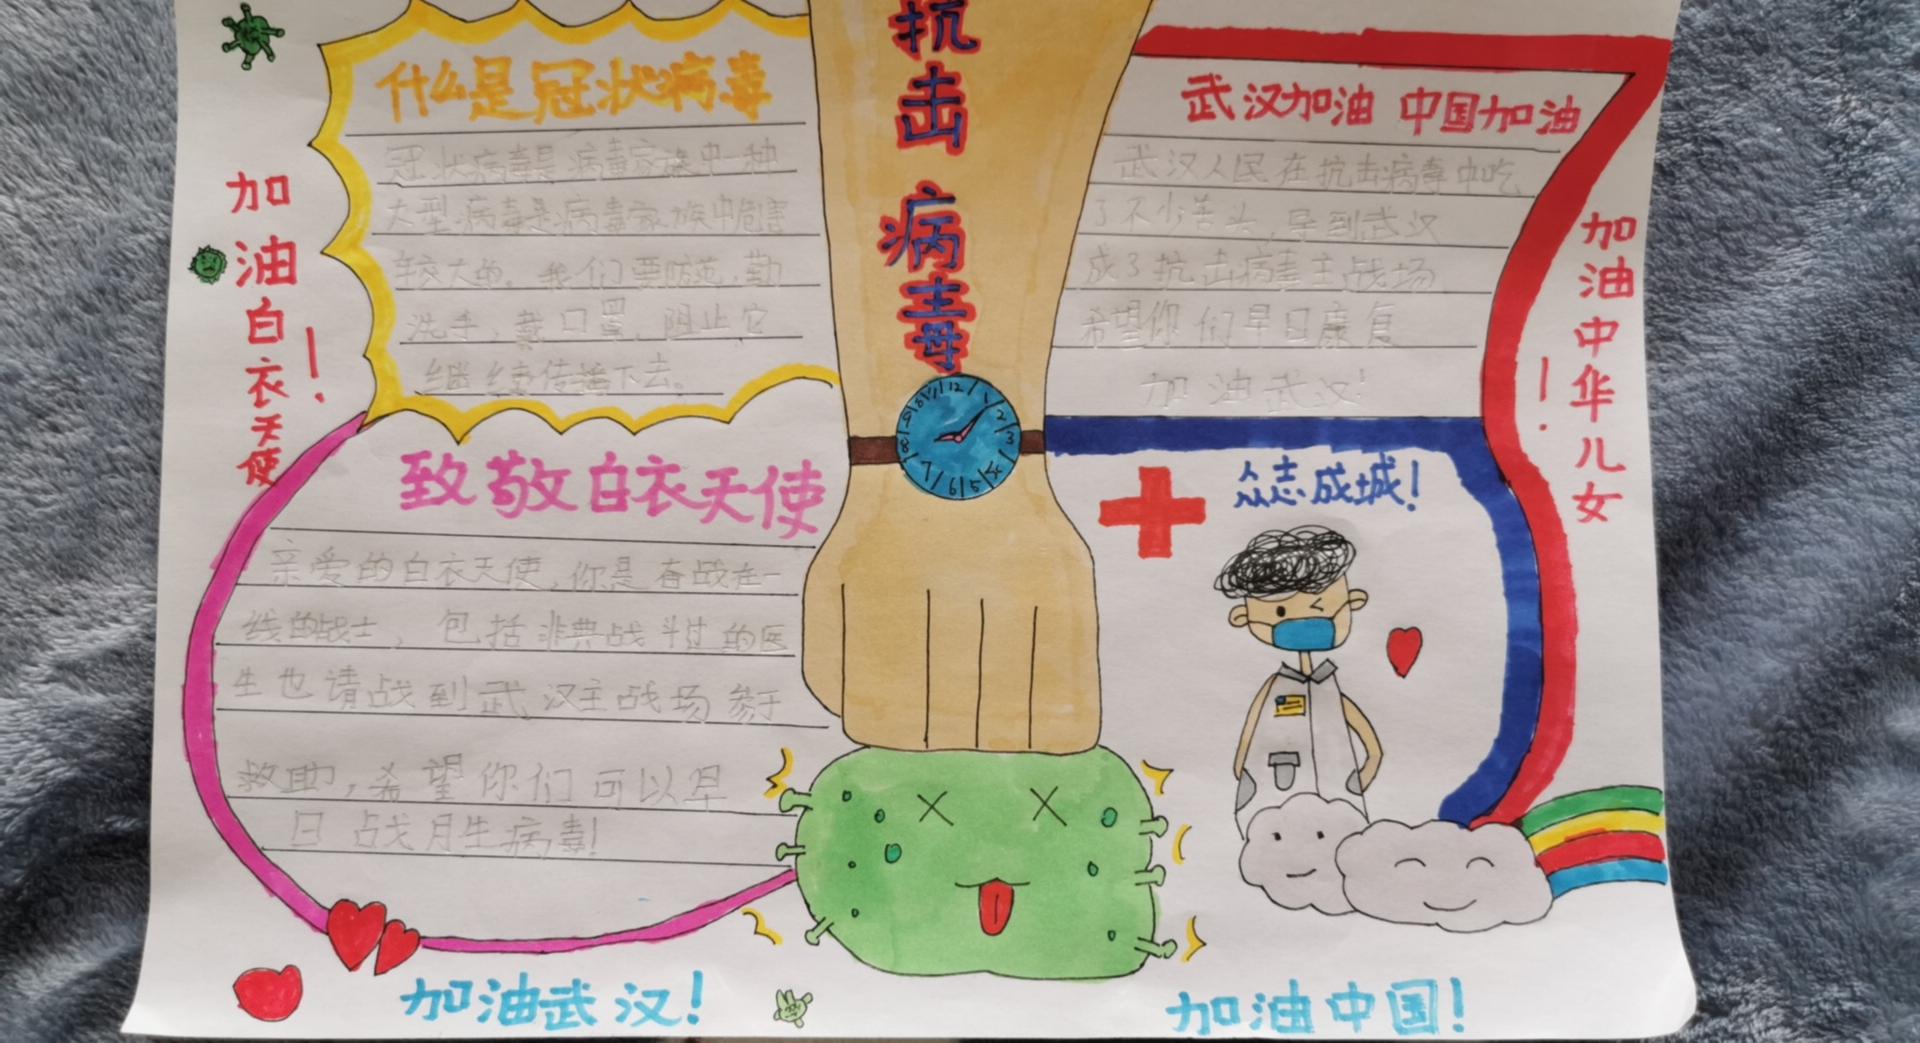 什么是冠状病毒
冠状病毒是病毒家族中一种
大型病毒是病毒家族中危害
较大的。我们要防范,勤
洗手,戴口罩,阻止它
继续传播下去。
抗击病毒
武汉加油 中国加油
武汉人民在抗击病毒中吃
了不少苦头,导到武汉
成了抗击病毒主战场
希望你们早日康复
加油武汉!
加油白衣天使!
加油中华儿女!
致敬白衣天使
亲爱的白衣天使,你是奋战在一
线的战士,包括非典战斗过的医
生也请战到武汉主战场参于
救助,希望你们可以早
日战月生病毒!
12
1
2
3
5
6
7
8
众志成城!
加油武汉!
加油中国!